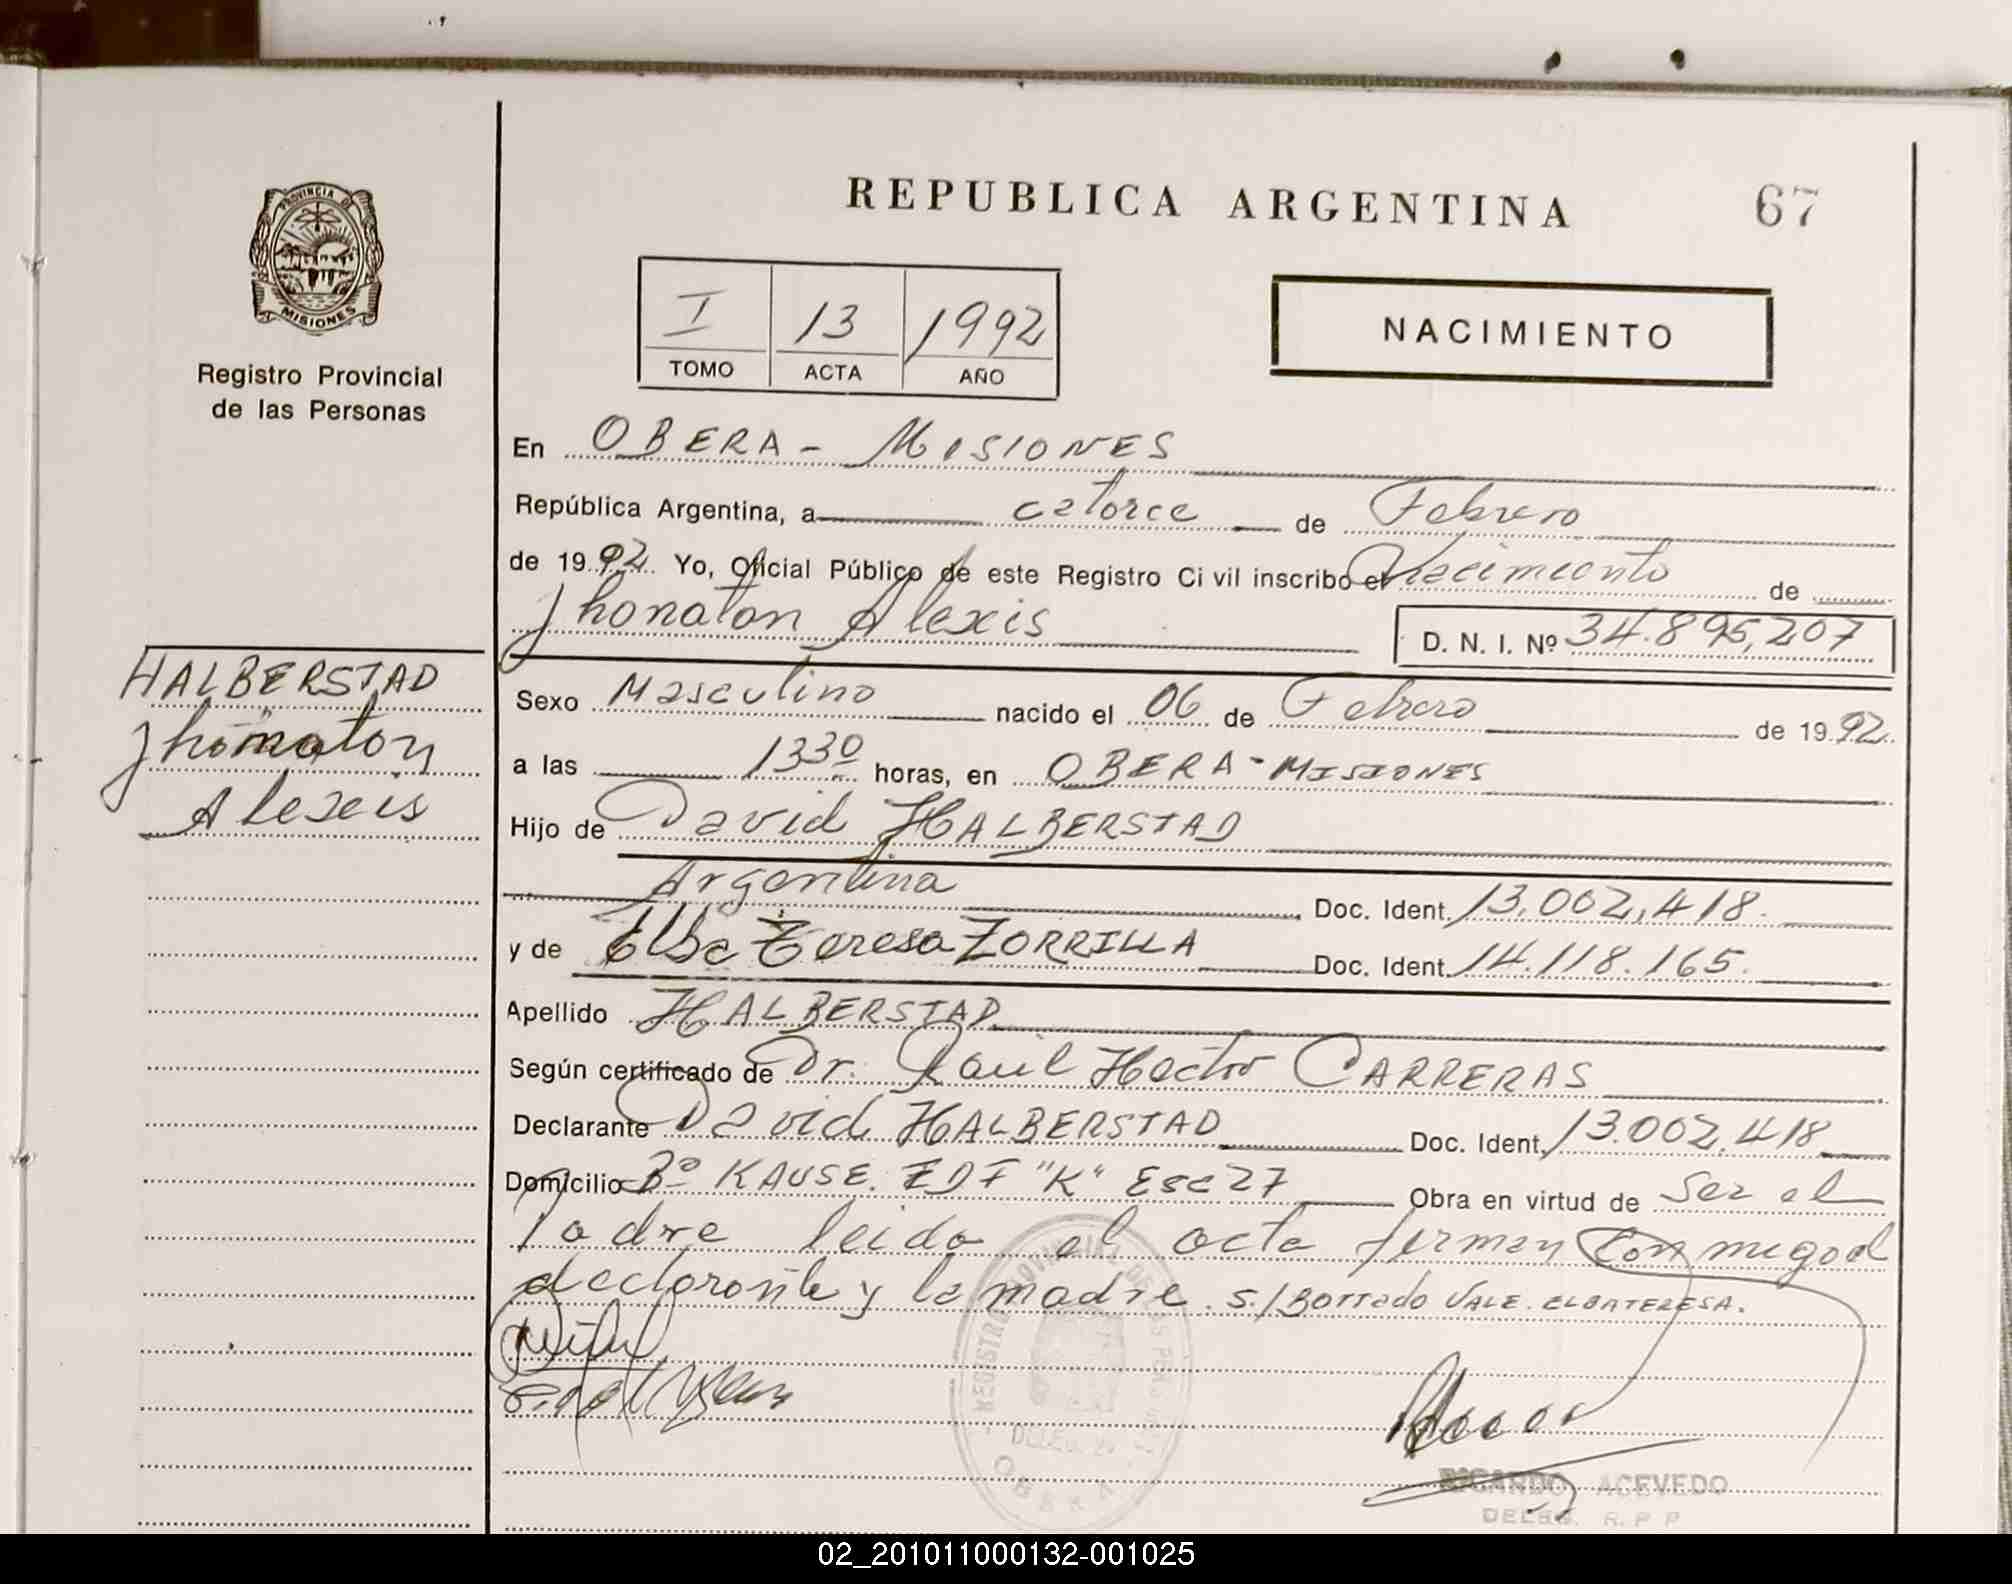 PROVINCIA DE
MISIONES
Registro Provincial
de las Personas
HALBERSTAD
Jhonaton
Alexis
REPUBLICA ARGENTINA
67
I 13 1992
TOMO ACTA AÑO
NACIMIENTO
En OBERA - MISIONES
República Argentina, a catorce de Febrero
de 1992. Yo, Oficial Público de este Registro Civil inscribo el Nacimiento de
Jhonaton Alexis
D. N. I. Nº 34.895,207
Sexo Masculino nacido el 06 de Febrero de 1992.
a las 1330 horas, en OBERA - MISIONES
Hijo de David HALBERSTAD
Argentina Doc. Ident. 13.002,418.
y de Elba Teresa ZORRILLA Doc. Ident. 14.118.165.
Apellido HALBERSTAD
Según certificado de Dr. Raúl Hector CARRERAS
Declarante David HALBERSTAD Doc. Ident. 13.002.418
Domicilio Bº KAUSE. EDF "K" Esc 27 Obra en virtud de ser el
Padre leida el acta firman conmigo el
declarante y la madre. S/Borrado VALE. ELBA TERESA.
REGISTRO PROVINCIAL DE LAS PERSONAS
DELEG.
OBERA
RICARDO ACEVEDO
DELEG. R. P P
02_201011000132-001025